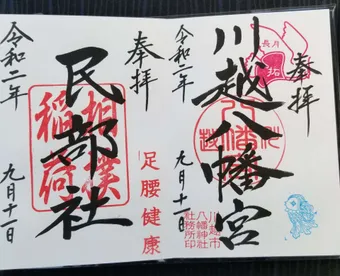 奉拝
川越八幡宮
令和二年
九月十一日
長月
川越市
八幡神社
社務所印
奉拝
民部社
相撲
稲荷
足腰健康
令和二年
九月十一日